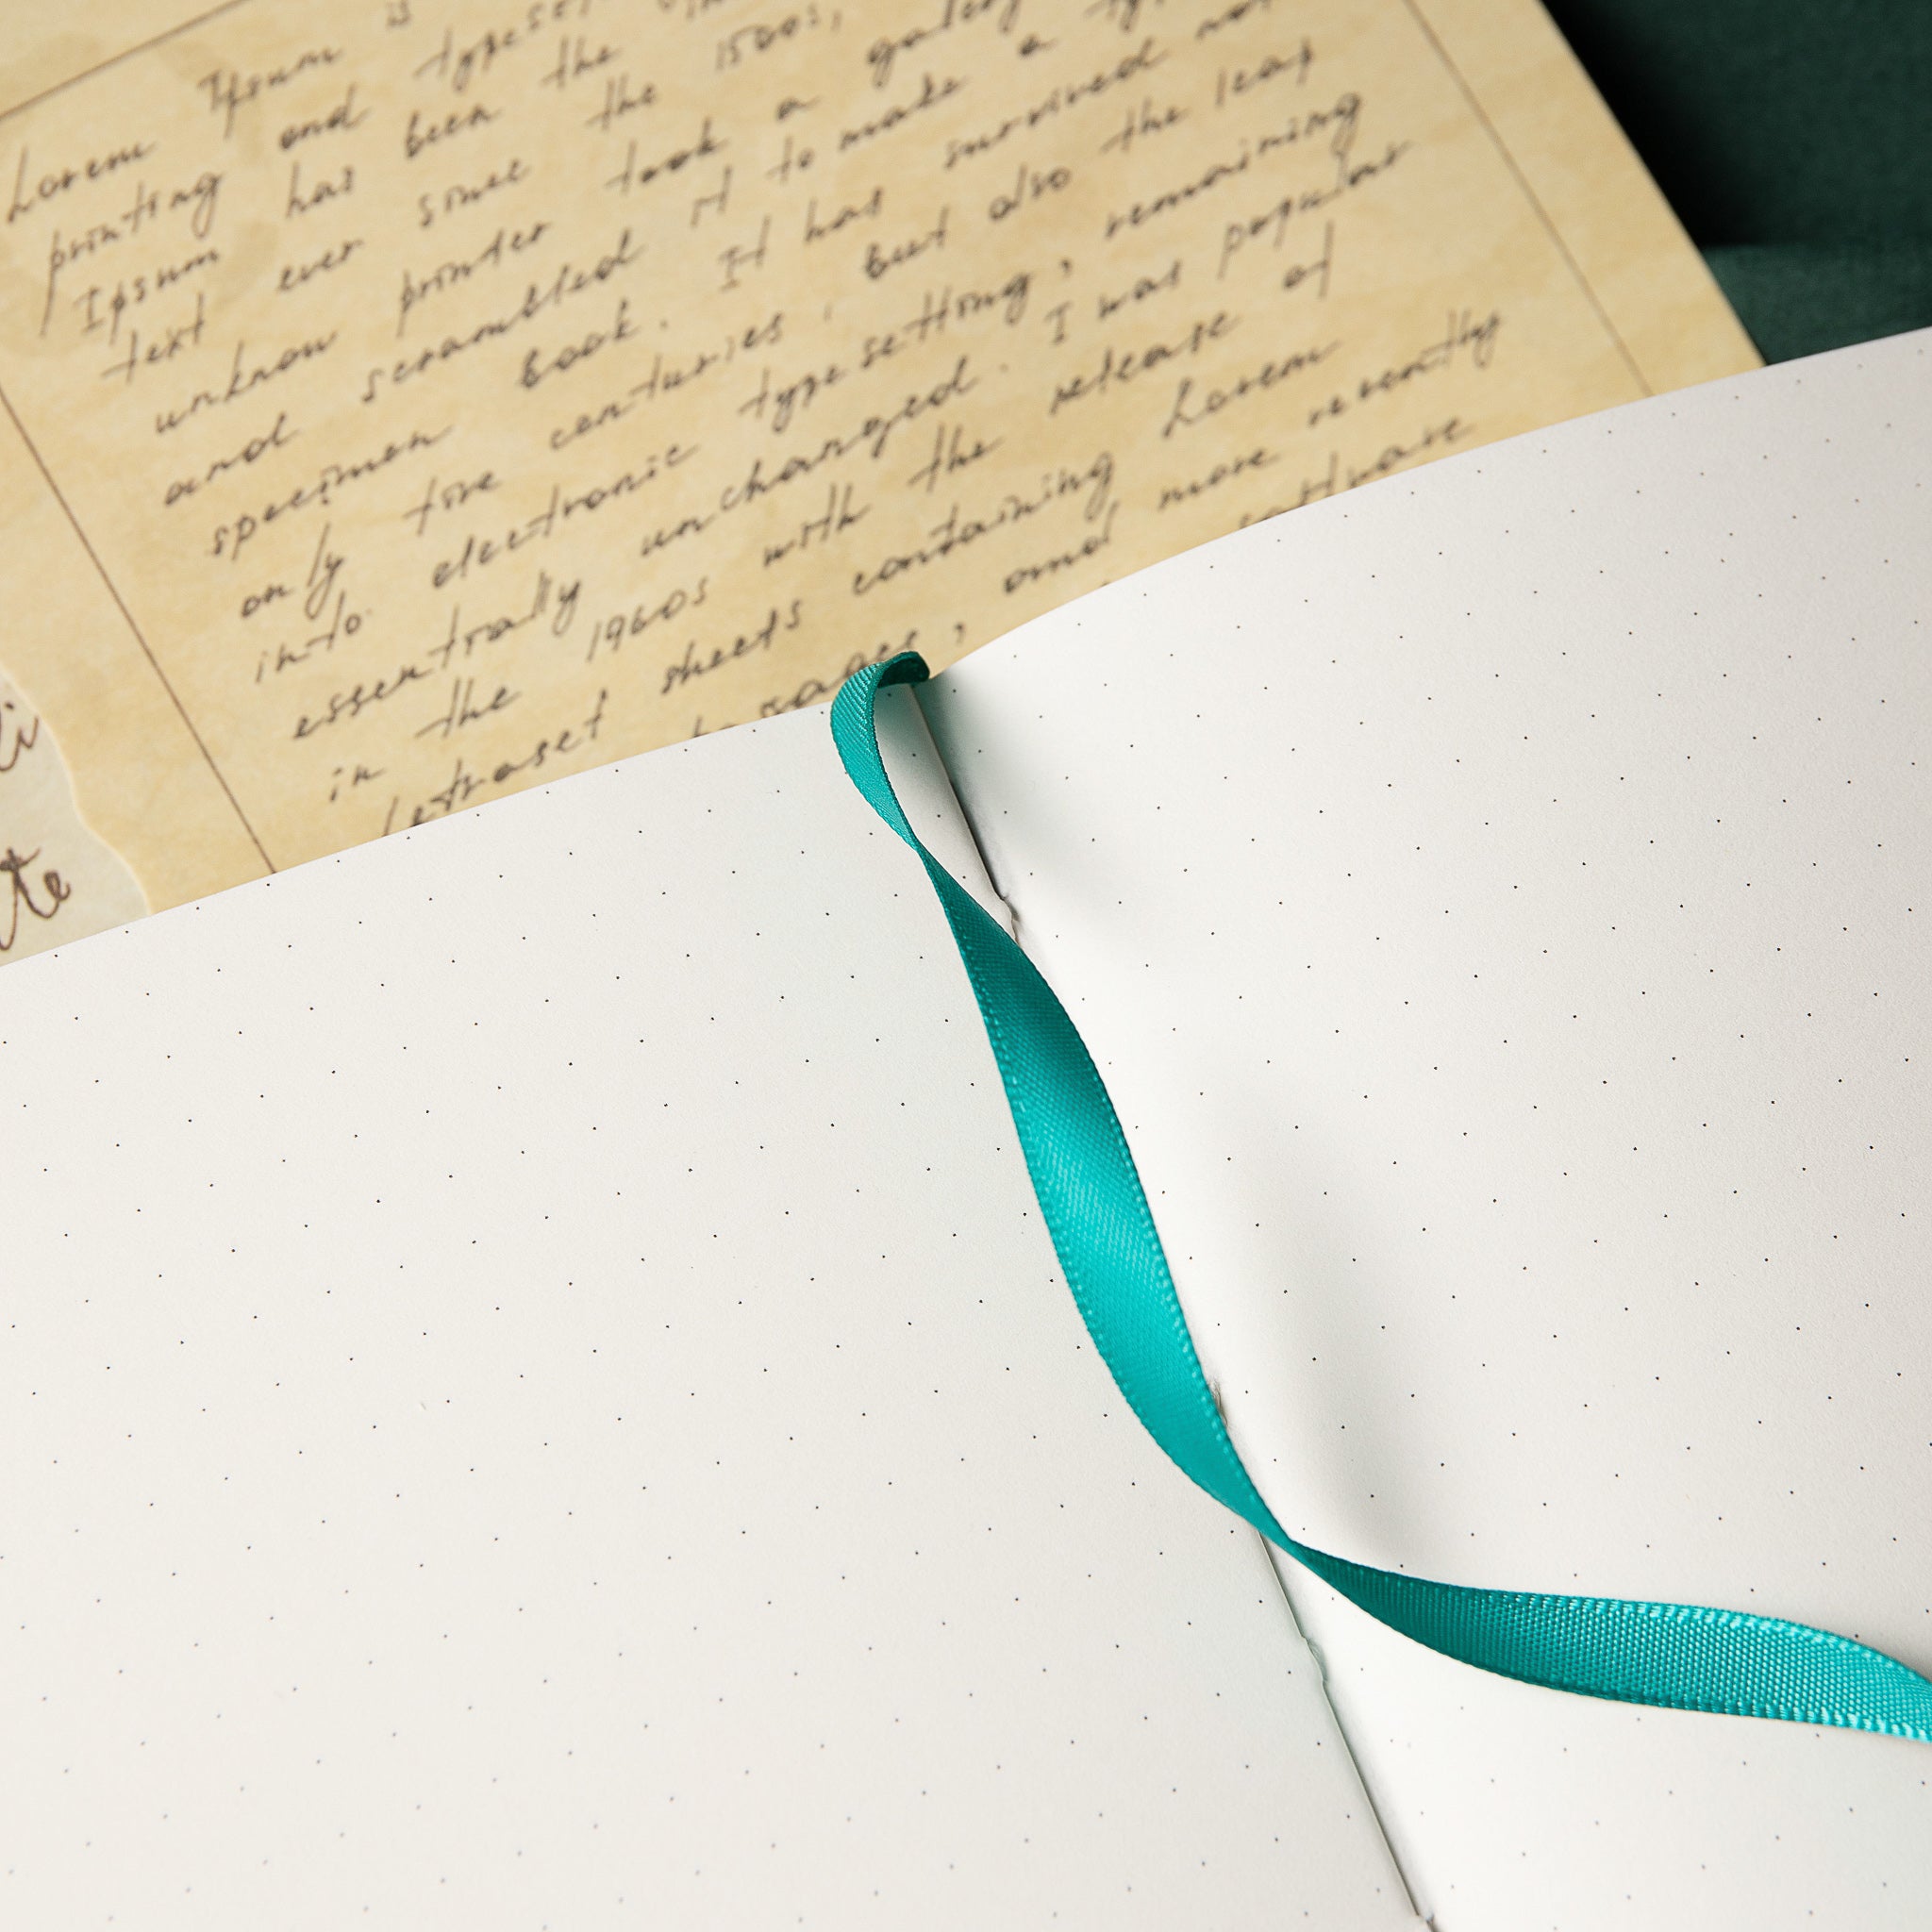 Lorem Ipsum is
printing and typese
Ipsum has been the in
text ever since the 1500s,
unknow printer took a galley
and scrambled it to make a ty
specimen book. It has survived not
only five centuries, but also the leap
into electronic typesetting, remaining
essentially unchanged. I was popular
in the 1960s with the release of
letraset sheets containing Lorem
and more recently
li
te